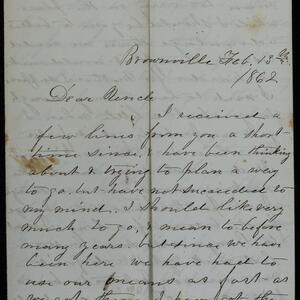 Brownville Feb. 13th
1862
Dear Uncle
I received a
few lines form you a short
time since, I have been thinking
about & trying to plan a way
to go. but have not succeeded to
my mind. I should like very
much to go, I mean to before
many years. but since we have
been here we have had to
use our means as fast as
we got